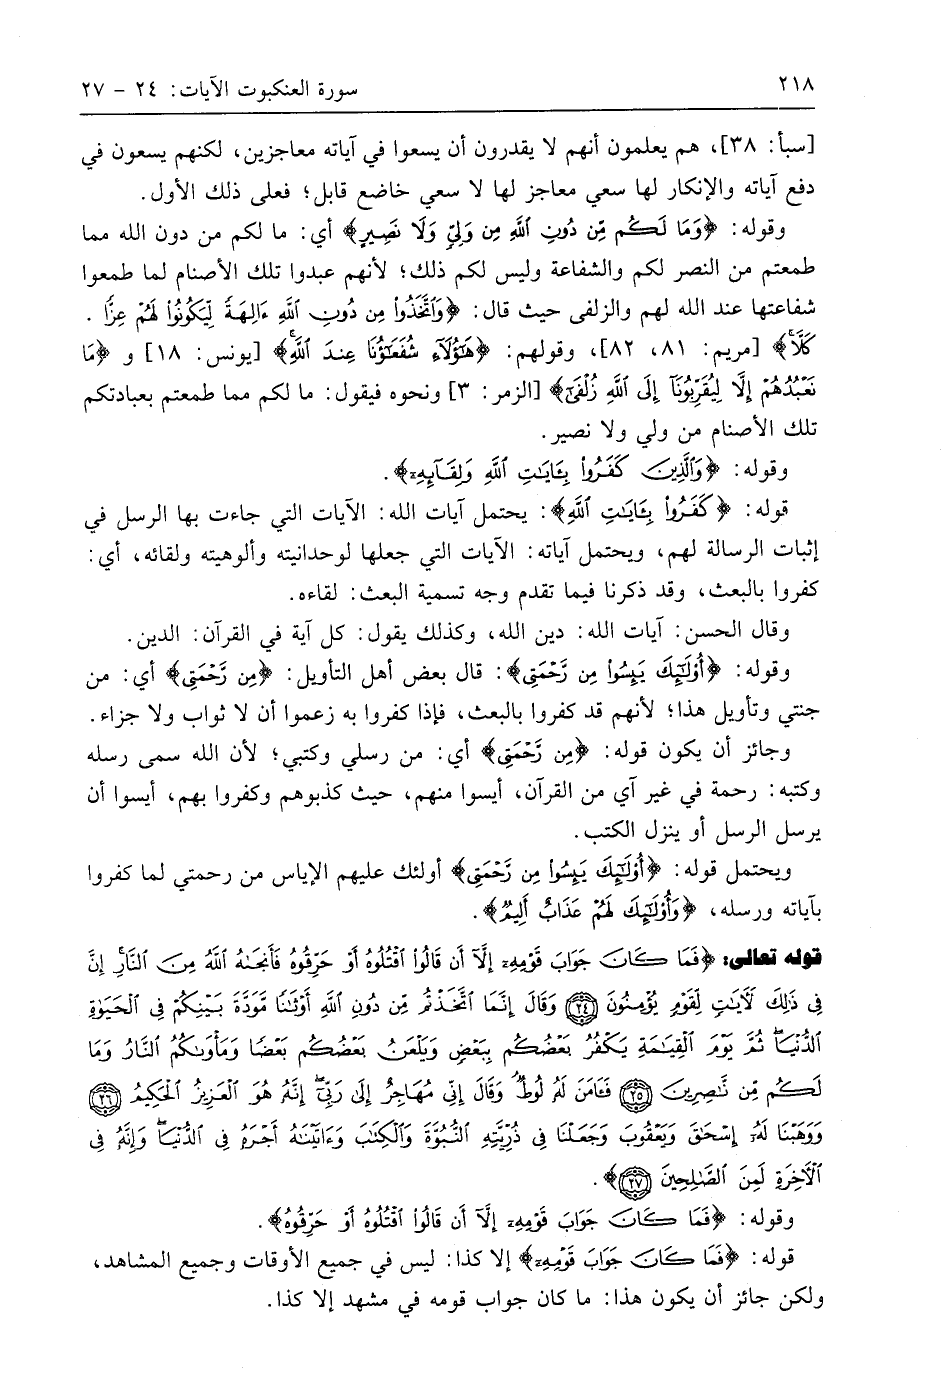 ٢١٨
سورة العنكبوت الآيات: ٢٤ - ٢٧
[سبأ: ٣٨]، هم يعلمون أنهم لا يقدرون أن يسعوا في آياته معاجزين، لكنهم يسعون في
دفع آياته والإنكار لها سعي معاجز لها لا سعي خاضع قابل؛ فعلى ذلك الأول.
وقوله: ﴿وَمَا لَكُم مِّن دُونِ ٱللَّهِ مِن وَلِيٍّ وَلَا نَصِيرٍ﴾ أي: ما لكم من دون الله مما
طمعتم من النصر لكم والشفاعة وليس لكم ذلك؛ لأنهم عبدوا تلك الأصنام لما طمعوا
شفاعتها عند الله لهم والزلفى حيث قال: ﴿وَٱتَّخَذُوا۟ مِن دُونِ ٱللَّهِ ءَالِهَةً لِّيَكُونُوا۟ لَهُمْ عِزًّا .
كَلَّا﴾ [مريم: ٨١، ٨٢]، وقولهم: ﴿هَٰٓؤُلَآءِ شُفَعَٰٓؤُنَا عِندَ ٱللَّهِ﴾ [يونس: ١٨] و ﴿مَا
نَعْبُدُهُمْ إِلَّا لِيُقَرِّبُونَآ إِلَى ٱللَّهِ زُلْفَىٰٓ﴾ [الزمر: ٣] ونحوه فيقول: ما لكم مما طمعتم بعبادتكم
تلك الأصنام من ولي ولا نصير.
وقوله: ﴿وَٱلَّذِينَ كَفَرُوا۟ بِـَٔايَٰتِ ٱللَّهِ وَلِقَآئِهِۦٓ﴾.
قوله: ﴿كَفَرُوا۟ بِـَٔايَٰتِ ٱللَّهِ﴾: يحتمل آيات الله: الآيات التي جاءت بها الرسل في
إثبات الرسالة لهم، ويحتمل آياته: الآيات التي جعلها لوحدانيته وألوهيته ولقائه، أي:
كفروا بالبعث، وقد ذكرنا فيما تقدم وجه تسمية البعث: لقاءه.
وقال الحسن: آيات الله: دين الله، وكذلك يقول: كل آية في القرآن: الدين.
وقوله: ﴿أُو۟لَٰٓئِكَ يَئِسُوا۟ مِن رَّحْمَتِى﴾: قال بعض أهل التأويل: ﴿مِن رَّحْمَتِى﴾ أي: من
جنتي وتأويل هذا؛ لأنهم قد كفروا بالبعث، فإذا كفروا به زعموا أن لا ثواب ولا جزاء.
وجائز أن يكون قوله: ﴿مِن رَّحْمَتِى﴾ أي: من رسلي وكتبي؛ لأن الله سمى رسله
وكتبه: رحمة في غير آي من القرآن، أيسوا منهم، حيث كذبوهم وكفروا بهم، أيسوا أن
يرسل الرسل أو ينزل الكتب.
ويحتمل قوله: ﴿أُو۟لَٰٓئِكَ يَئِسُوا۟ مِن رَّحْمَتِى﴾ أولئك عليهم الإياس من رحمتي لما كفروا
بآياته ورسله، ﴿وَأُو۟لَٰٓئِكَ لَهُمْ عَذَابٌ أَلِيمٌ﴾.
قوله تعالى: ﴿فَمَا كَانَ جَوَابَ قَوْمِهِۦٓ إِلَّآ أَن قَالُوا۟ ٱقْتُلُوهُ أَوْ حَرِّقُوهُ فَأَنجَىٰهُ ٱللَّهُ مِنَ ٱلنَّارِ إِنَّ
فِى ذَٰلِكَ لَءَايَٰتٍ لِّقَوْمٍ يُؤْمِنُونَ ﴿٢٤﴾ وَقَالَ إِنَّمَا ٱتَّخَذْتُم مِّن دُونِ ٱللَّهِ أَوْثَٰنًا مَّوَدَّةَ بَيْنِكُمْ فِى ٱلْحَيَوٰةِ
ٱلدُّنْيَا ثُمَّ يَوْمَ ٱلْقِيَٰمَةِ يَكْفُرُ بَعْضُكُم بِبَعْضٍ وَيَلْعَنُ بَعْضُكُم بَعْضًا وَمَأْوَىٰكُمُ ٱلنَّارُ وَمَا
لَكُم مِّن نَّٰصِرِينَ ﴿٢٥﴾ فَـَٔامَنَ لَهُۥ لُوطٌ وَقَالَ إِنِّى مُهَاجِرٌ إِلَىٰ رَبِّىٓ إِنَّهُۥ هُوَ ٱلْعَزِيزُ ٱلْحَكِيمُ ﴿٢٦﴾
وَوَهَبْنَا لَهُۥٓ إِسْحَٰقَ وَيَعْقُوبَ وَجَعَلْنَا فِى ذُرِّيَّتِهِ ٱلنُّبُوَّةَ وَٱلْكِتَٰبَ وَءَاتَيْنَٰهُ أَجْرَهُۥ فِى ٱلدُّنْيَا وَإِنَّهُۥ فِى
ٱلْءَاخِرَةِ لَمِنَ ٱلصَّٰلِحِينَ ﴿٢٧﴾﴾.
وقوله: ﴿فَمَا كَانَ جَوَابَ قَوْمِهِۦٓ إِلَّآ أَن قَالُوا۟ ٱقْتُلُوهُ أَوْ حَرِّقُوهُ﴾.
قوله: ﴿فَمَا كَانَ جَوَابَ قَوْمِهِۦٓ﴾ إلا كذا: ليس في جميع الأوقات وجميع المشاهد،
ولكن جائز أن يكون هذا: ما كان جواب قومه في مشهد إلا كذا.